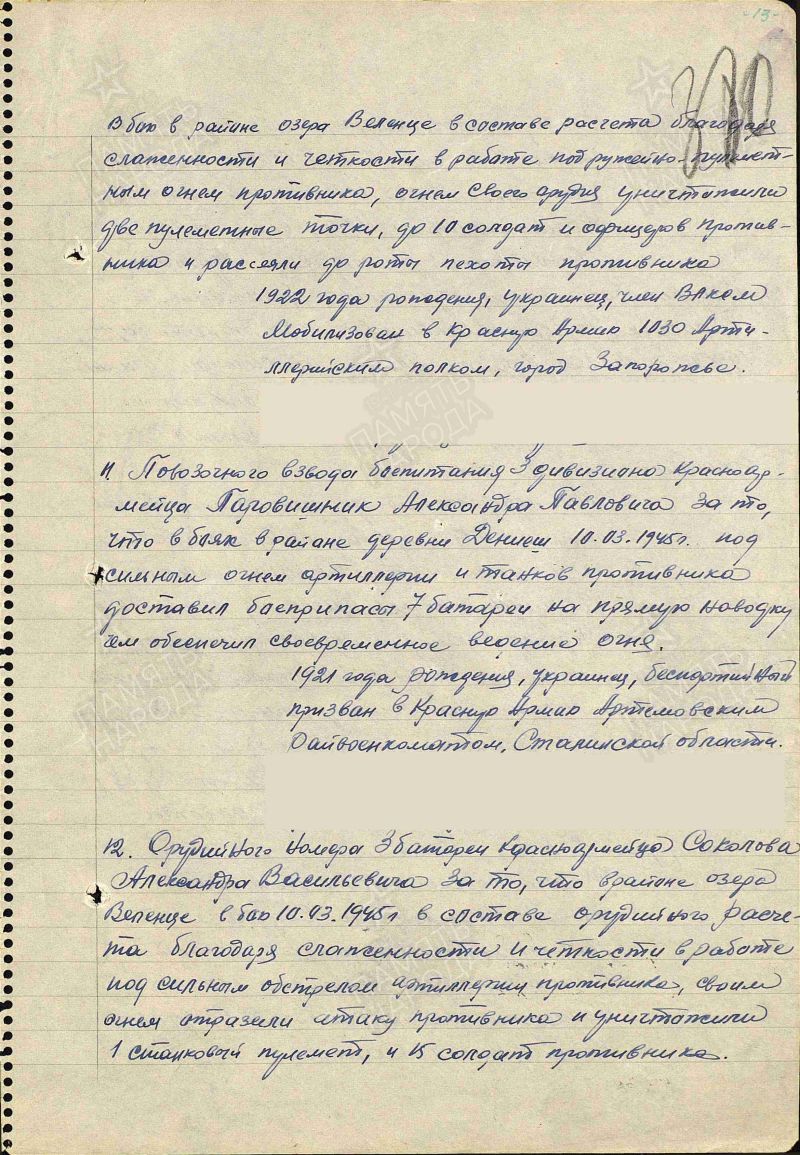 -13-
В бою в районе озера Веленце в составе расчета благодаря
слаженности и четкости в работе под ружейно-пулемет-
ным огнем противника, огнем своего орудия уничтожили
две пулеметные точки, до 10 солдат и офицеров против-
ника и рассеяли до роты пехоты противника
1922 года рождения, украинец, член ВЛКСМ
Мобилизован в Красную Армию 1030 Арти-
ллерийским полком, город Запорожье.
11. Повозочного взвода боепитания 3 дивизиона Красноар-
мейца Паровишник Александра Павловича за то,
что в боях в районе деревни 10.03.1945г. под
сильным огнем артиллерии и танков противника
доставил боеприпасы 7 батареи на прямую наводку
чем обеспечил своевременное ведение огня.
1921 года рождения, украинец, беспартийный
призван в Красную Армию Артемовским
Райвоенкоматом, Сталинской области.
12. Орудийного номера 3 батареи Красноармейца Соколова
Александра Васильевича за то, что в районе озера
Веленце в бою 10.03.1945г в составе орудийного расче-
та благодаря слаженности и четкости в работе
под сильным обстрелом артиллерии противника, своим
огнем отразили атаку противника и уничтожили
1 станковый пулемет, и 15 солдат противника.
ПАМЯТЬ
НАРОДА